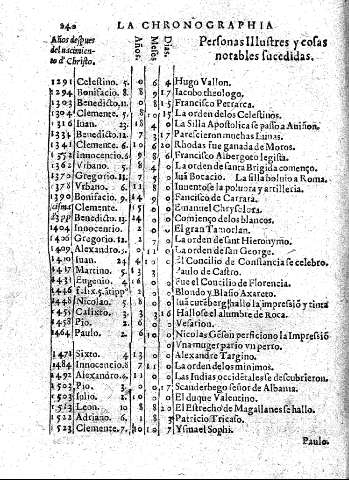 240 LA CHRONOGRAPHIA
Años despues del nacimiento d' Christo. Años. Meses. Dias. Personas Illustres y cosas notables sucedidas.
1291 Celestino. 5. 0 6 4 Hugo Vallon.
1294 Bonifacio. 8 8 9 17 Iacobo theologo.
1303 Benedicto. 11 0 8 15 Francisco Petrarca.
1304 Clemente. 5 8 10 15 La orden de los Celestinos.
1316 Iuan. 23 18 4 0 La Silla Apostolica se passo a Auiñon.
1334 Benedicto. 12 7 3 17 Parescieron muchas Lunas.
1341 Clemente. 6 10 6 20 Rhodas fue ganada de Moros.
1352 Innocencio. 6 9 8 6 Francisco Albergoto legista.
1362 Vrbano. 5 8 4 0 La orden de santa Brigida començo.
1370 Gregorio. 11 7 2 0 Iuã Bocacio. La silla boluio a Roma.
1378 Vrbano. 6. 11 8 0 Inuentose la poluora y artilleria.
1390 Bonifacio. 9 14 9 0 Fancisco de Carrara.
Clemente. 15 0 0 Emanuel Chrysolora.
Benedicto. 13 0 0 Comienço de los blancos.
1404 Innocencio. 2 0 0 El gran Tamorlan.
1406 Gregorio. 12 2 7 0 La orden de sant Hieronymo.
1409 Alexandro. 5 0 11 0 La orden de san George.
1410 Iuan. 24 4 10 El Concilio de Constancia se celebro.
1417 Martino. 5 13 3 Paulo de Castro.
1431 Eugenio. 4 16 0 Fue el Concilio de Florencia.
1446 Blondo y Blasio Axareto.
1446 Nicolao. 5 8 0 0 Iuã cutẽberg hallo la impressiõ y tinta
1455 Calixto. 3 3 3 16 Hallose el alumbre de Roca.
1458 Pio. 2 6 0 0 Vesarion.
1464 Paulo. 2 6 10 Nicolas Gẽson perficiono la Impressiõ
Vna muger pario vn perro.
1471 Sixto. 4 13 0 0 Alexandre Targino.
1484 Innocencio. 8 7 11 0 La orden de los minimos.
1492 Alexandro. 6 11 0 0 Las Indias occidẽtales se descubrieron.
1503 Pio. 3 0 0 17 Scanderbego señor de Albania.
1503 Iulio. 2 10 0 0 El duque Valentino.
1513 Leon. 10 8 8 20 El Estrecho de Magallanes se hallo.
1522 Adriano. 6 1 8 3 Patricio Tricaso.
1523 Clemente. 7 10 10 7 Ysmael Sophi.
Paulo.